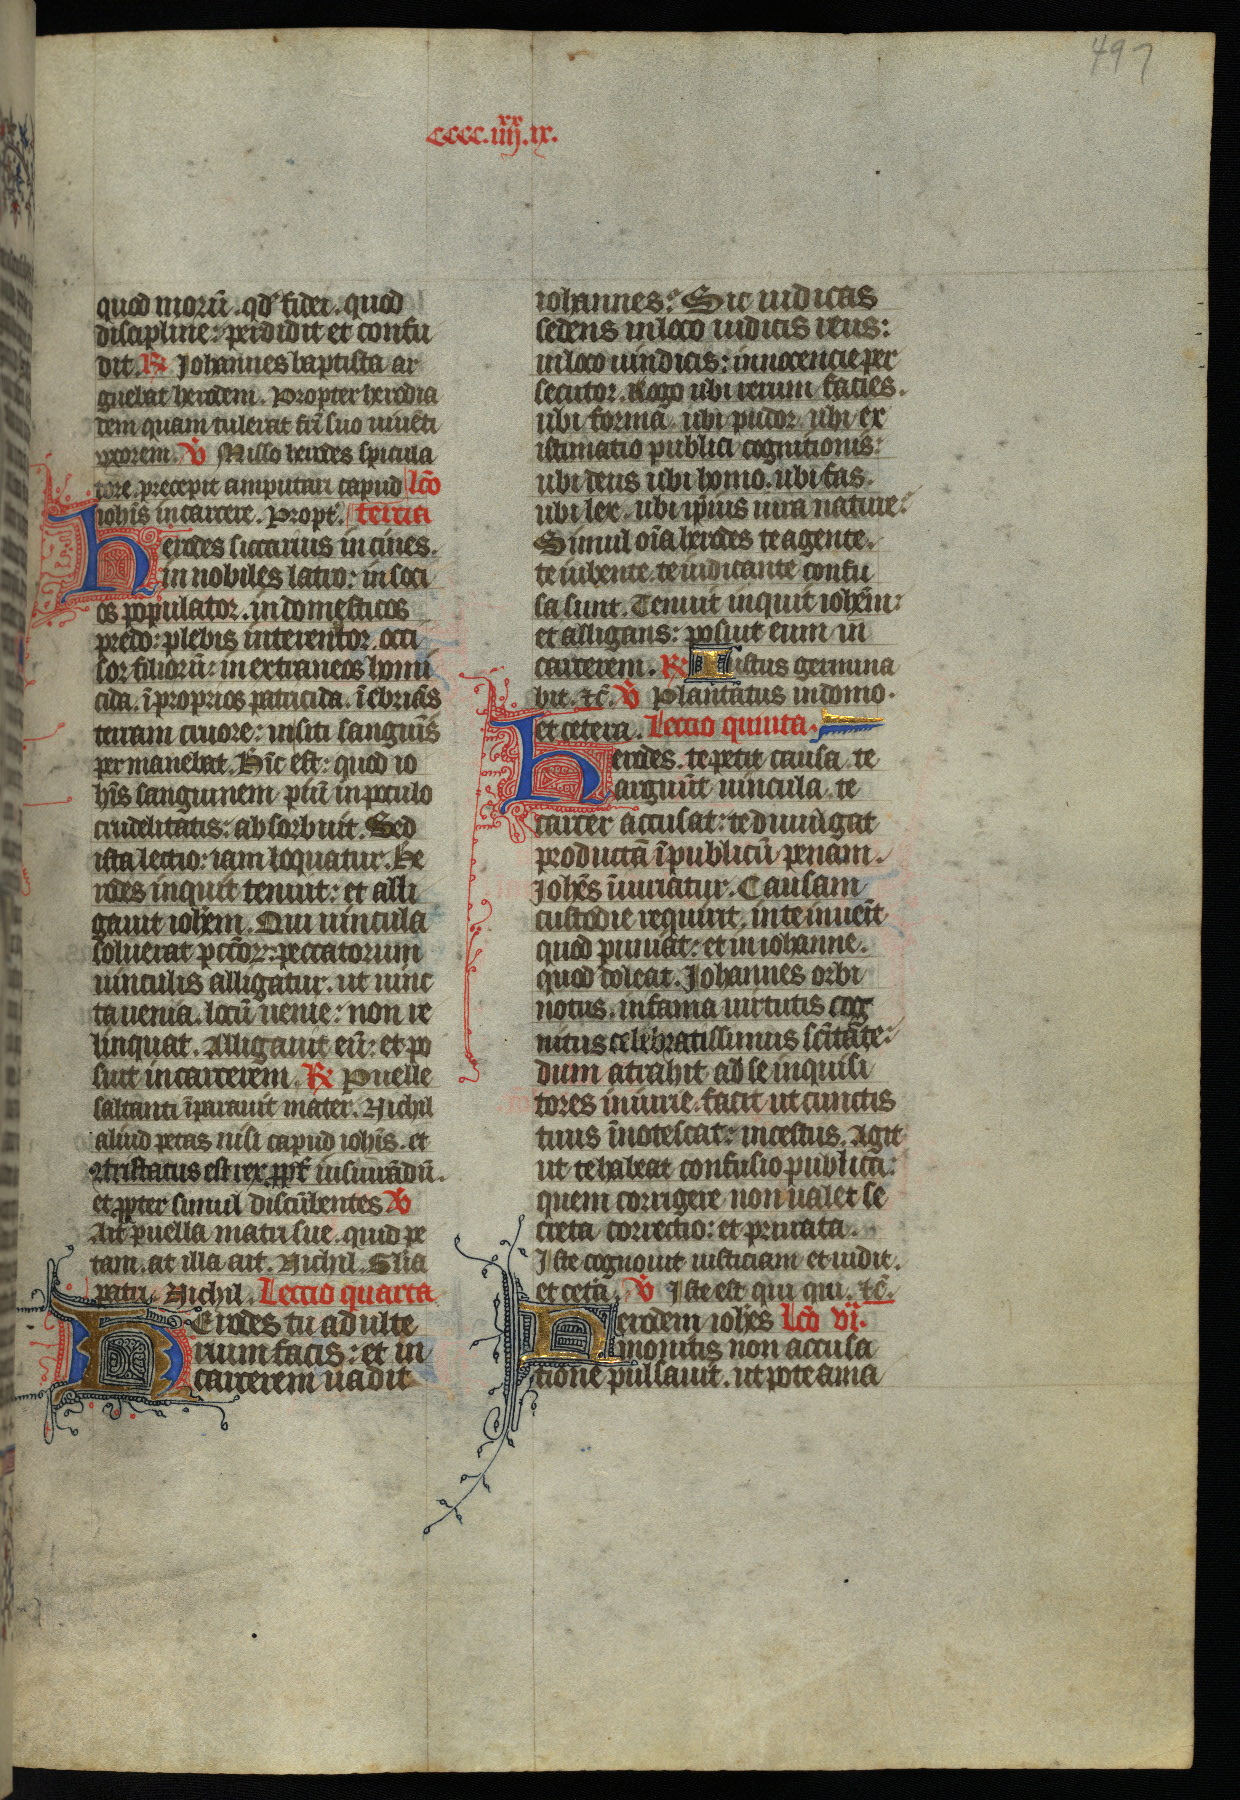 497
cccc.iiij.xx ix.
quod morū. qd' fidei. quod
discipline: perdidit et confu
dit. R Johannes baptista ar
guebat herodem. Propter herodia
dem quam tulerat fr̄i suo uiuēti
uxorem. V Misso herodes spicula
tore. precepit amputari capud lc̄o
iohīs in carcere. Propt'. tercia
herodes siccarius in ciues.
in nobiles latro: in soci
os populator. in domesticos
predo: plebis interemtor. occi
sor filiorū: in extraneos homi
cida. ī proprios patricida. ī ebriās
terram cruore: insiti sanguīs
permanebat. Hīc est: quod io
hīs sanguinem piū in poculo
crudelitatis: absorbuit. Sed
ista lectio: iam loquatur. He
rodes inquit tenuit: et alli
gauit iohēm. Qui uincula
soluerat pccōrz: peccatorum
uinculis alligatur. ut uinc
ta uenia. locū uenie: non re
linquat. Alligauit eū: et po
suit in carcerem. R Puelle
saltanti īparauit mater. Nichil
aliud petas nisi capud iohīs. et
9tristatus est rex ppt' iusiurādū.
et ppter simul discūbentes V
Ait puella matri sue. quid pe
tam. at illa ait. Nichil. Glīa
patri. Nichil. Leccio quarta
HErodes tu adulte
rium facis: et in
carcerem uadit
iohannes: Sic iudicas
sedens in loco iudicis reus:
in loco uindicis: innocencie per
secutor. Rogo ubi rerum facies.
ubi forma. ubi pudor. ubi ex
istimatio publici cognitionis:
ubi deus ubi homo. ubi fas.
ubi lex. ubi ip̄ius iura nature:
Simul oīa herodes te agente.
te iubente. te iudicante confu
sa sunt. Tenuit inquit iohēm:
et alligans: posuit eum in
carcerem. R Iustus germina
bit. &c̄. V Plantatus in domo.
et cetera. Leccio quinta.
herodes. te petit causa. te
arguūt uincula. te
carcer accusat: te diuulgat
productā ī publicū penam.
Johēs īiuriatur. Causam
custodie requirit. in te inueīt
quod puniat: et in iohanne.
quod doleat. Johannes orbi
notus. in fama uirtutis cog
nitus celebratissimus sc̄itate:
dum atrahit ad se inquisi
tores iniurie. facit ut cunctis
tuus īnotescat: incestus. Agit
ut te habeat confusio publica:
quem corrigere non ualet se
creta correctio: et priuata.
Iste cognouit iusticiam et uidit.
et cet'a. V Iste est qui qui. &c̄.
Herodem iohēs lc̄o vi.
monitis non accusa
tione pulsauit. ut pote ama